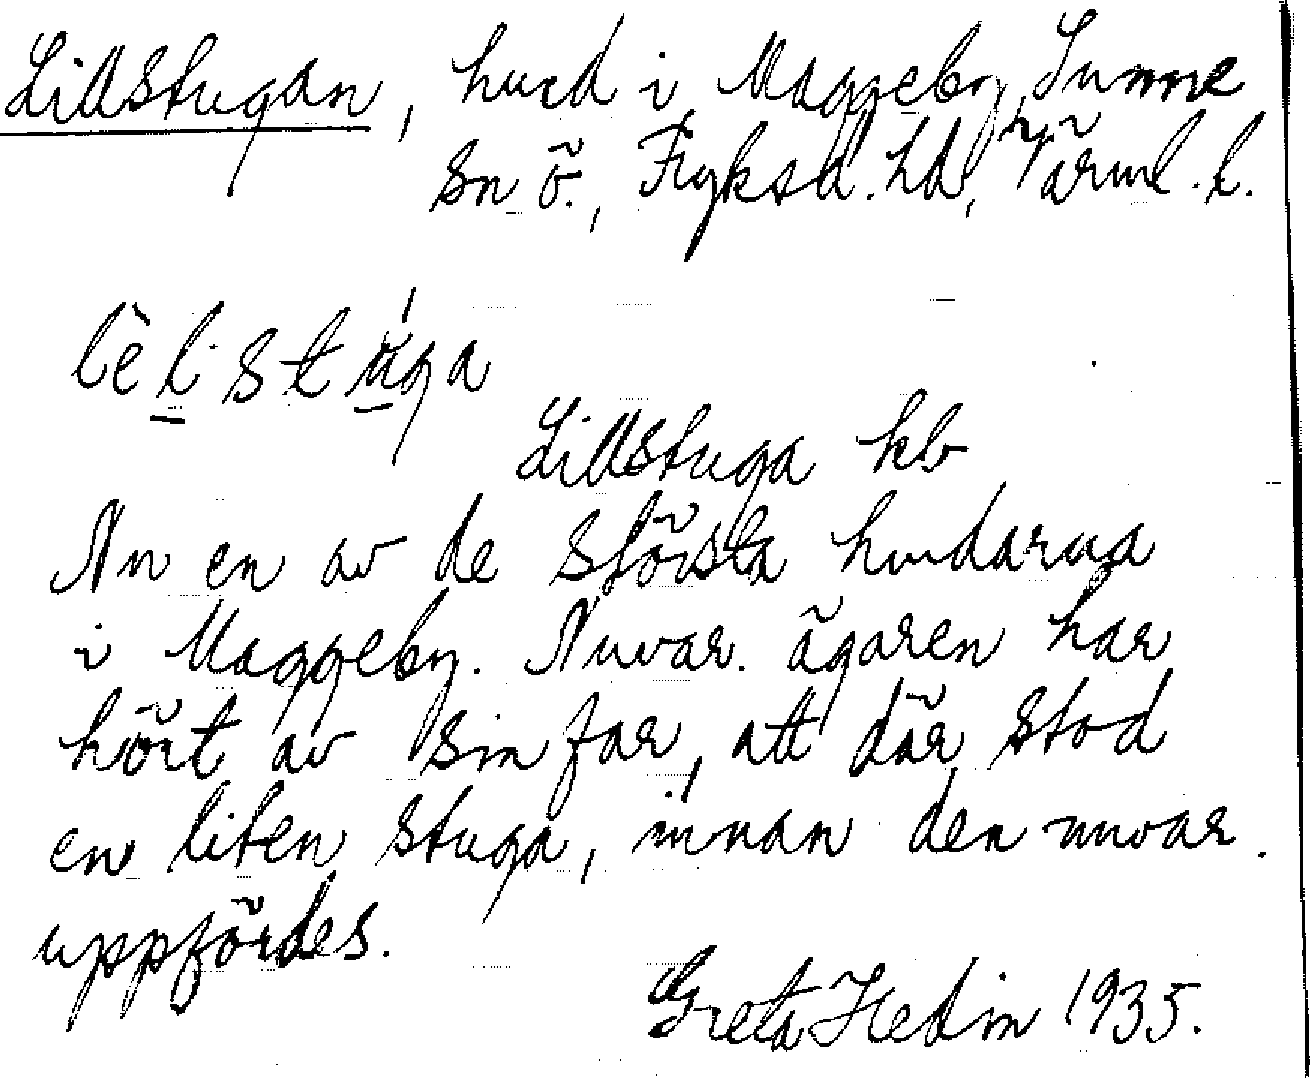 Lillstugan, hurd i Maggeby, Sunne
sn ö., Fryksd. hd, Värml. l.
lèl·stúga
Lillstuga kb
Nu en av de största hurdarna
i Maggeby. Nuvar. ägaren har
hört av sin far, att där stod
en liten stuga, innan den nuvar.
uppfördes.
Greta Hedin 1935.